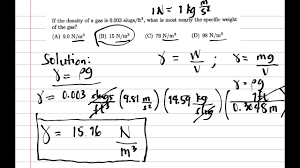 1N = 1 kg m/s²
If the density of a gas is 0.003 slugs/ft³, what is most nearly the specific weight of the gas?
(A) 9.0 N/m³ (B) 15 N/m³ (C) 76 N/m³ (D) 98 N/m³
Solution:
γ = ρg
γ = W/V ; γ = mg/V
γ = ρg
γ = 0.003 slugs/ft³ (9.81 m/s²) (14.59 kg/slug) (1ft/0.3048m)³
γ = 15.16 N/m³